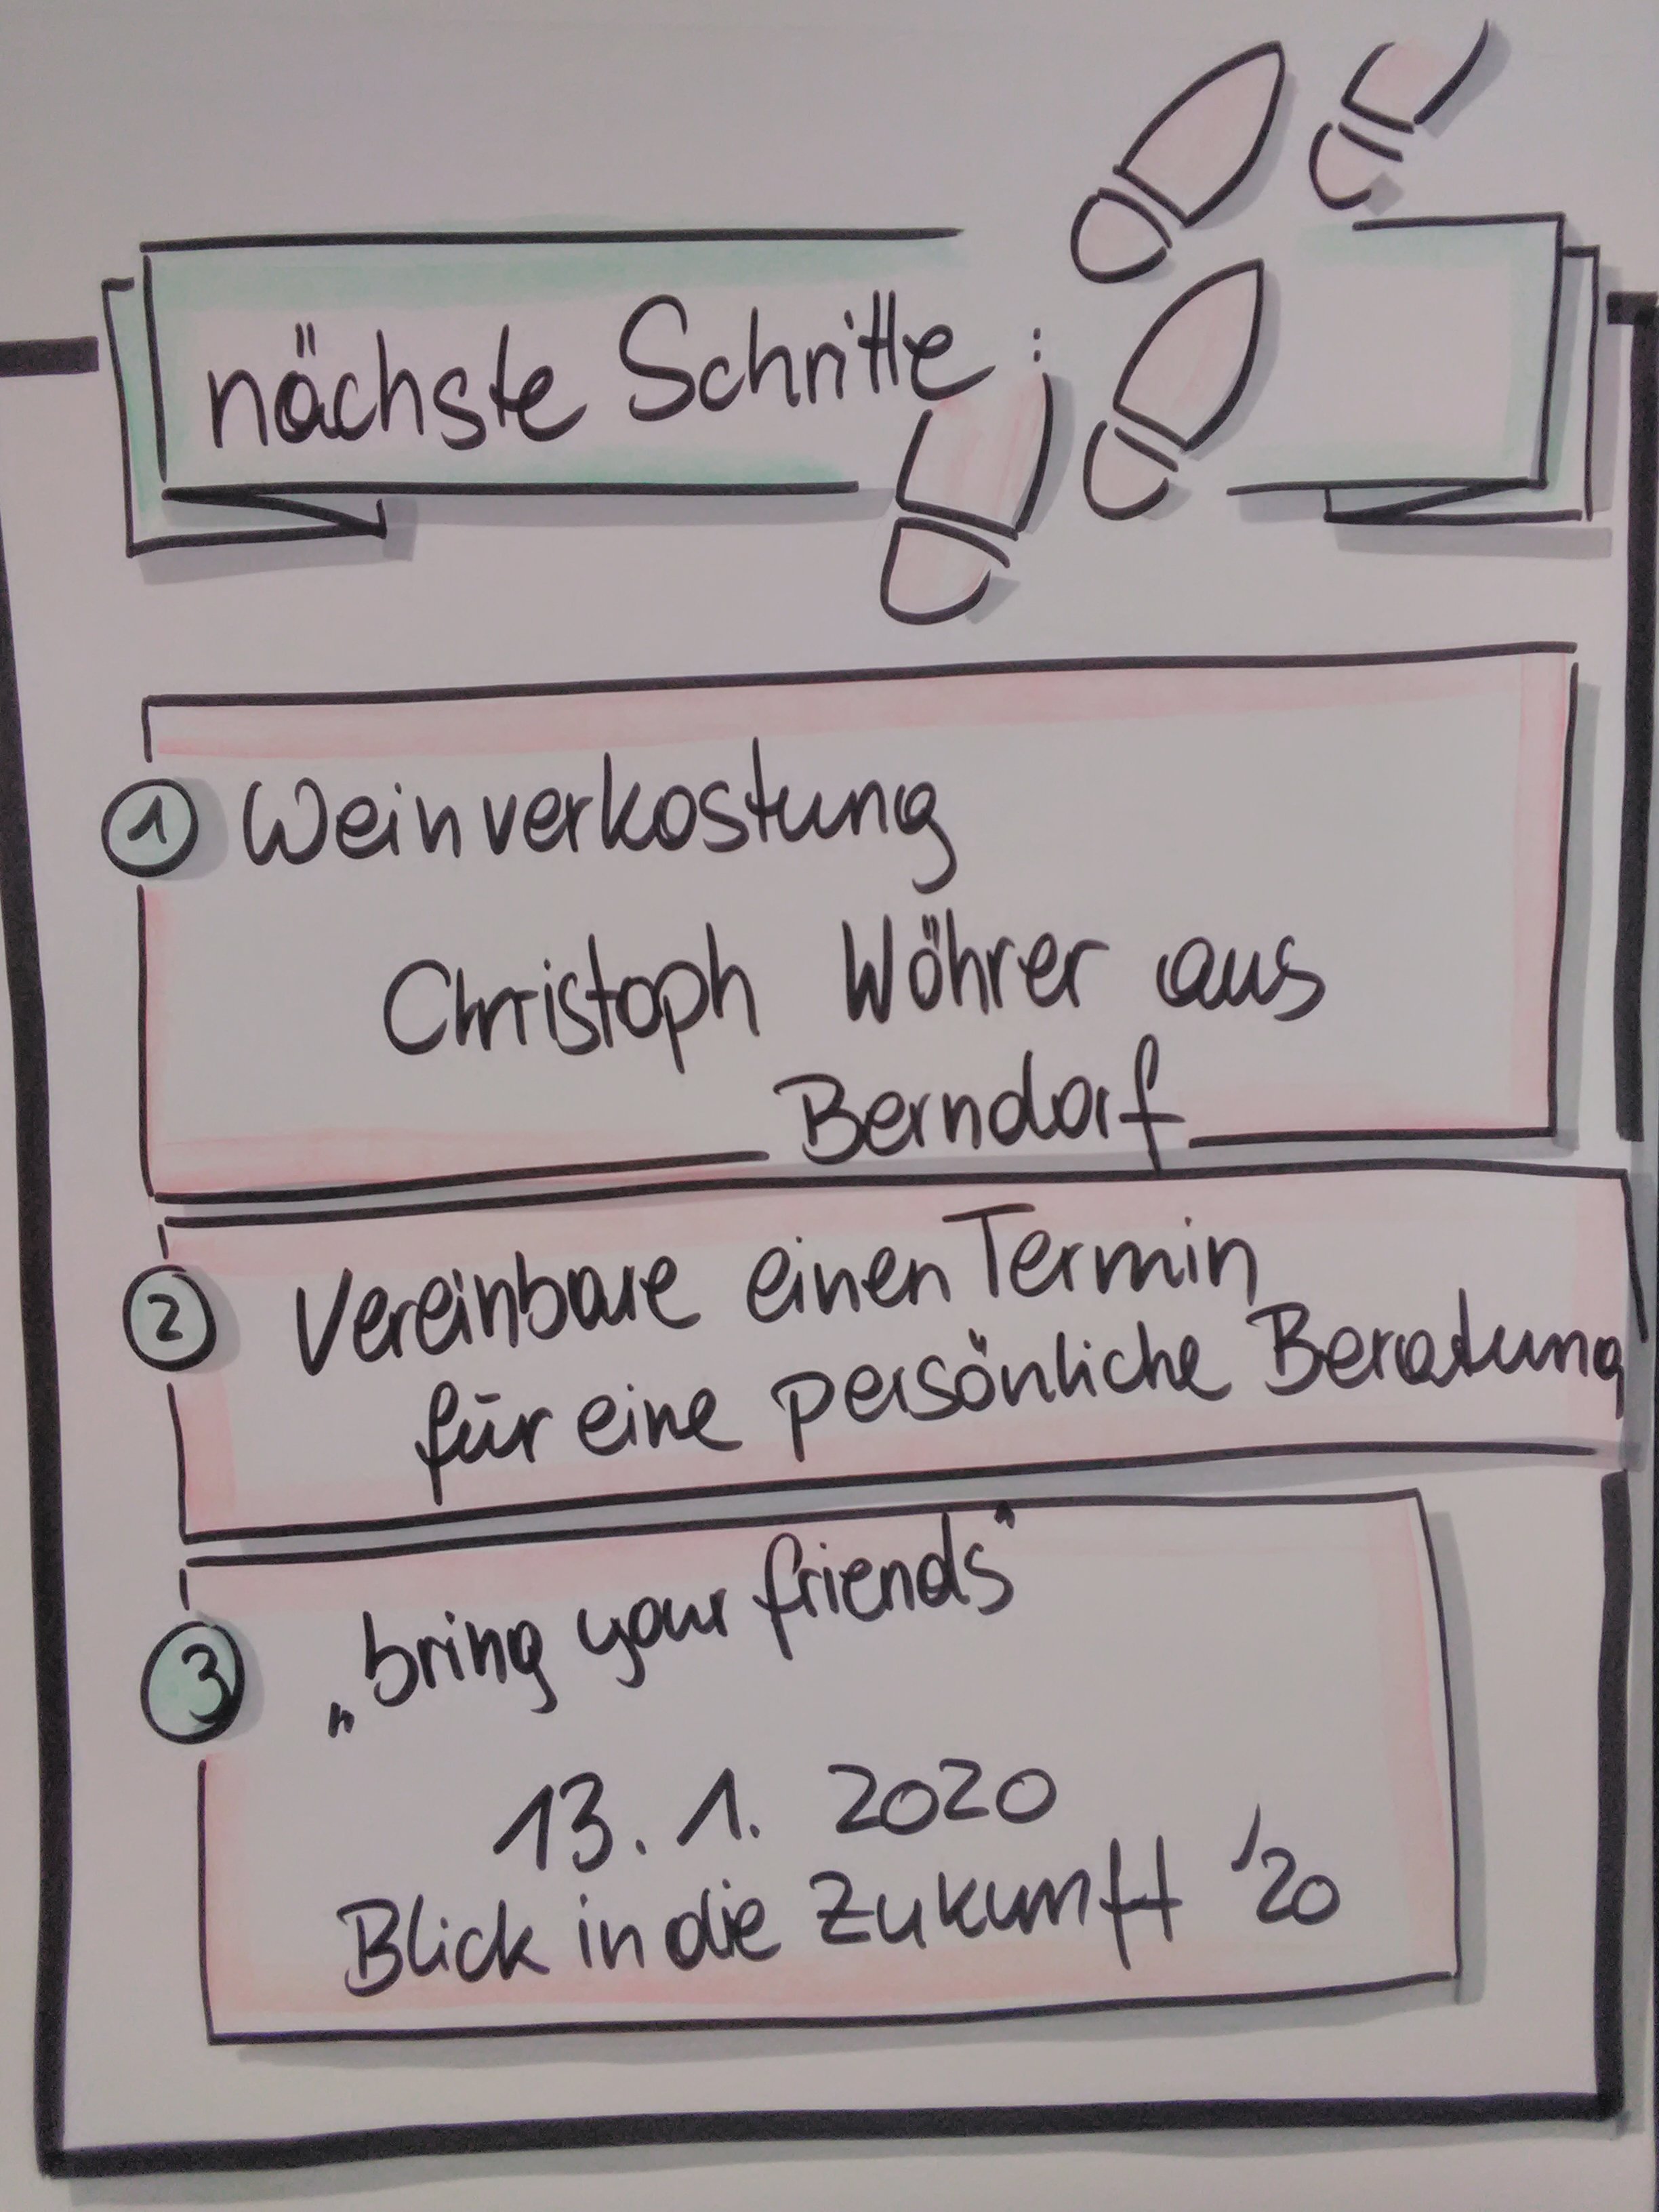 nächste Schritte:
1 Weinverkostung
Christoph Wöhrer aus
Berndorf
2 Vereinbare einen Termin
für eine persönliche Beratung
3 „bring your friends"
13. 1. 2020
Blick in die Zukunft '20